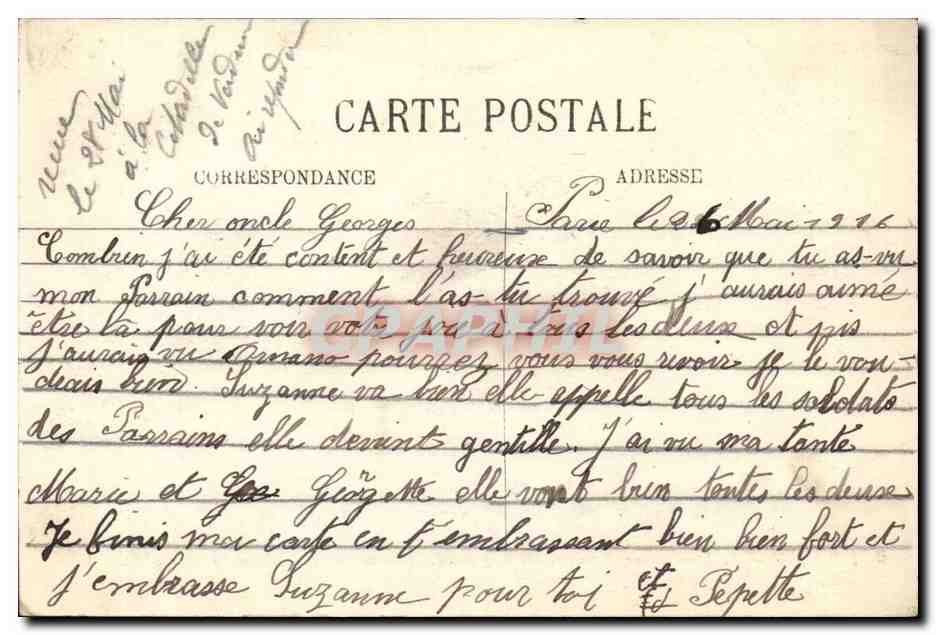 reçue
le 28 Mai
à la
Citadelle
de Verdun
ai repondu
CARTE POSTALE
CORRESPONDANCE
ADRESSE
Paris le 26 Mai 1916
Cher oncle Georges
Combien j'ai été content et heureuse de savoir que tu as vu
mon Parrain comment l'as-tu trouvé j'aurais aimé
être là pour voir votr joie à tous les deux et pis
j'aurais vu pourrez vous vous revoir je le vou-
drais bien. Suzanne va bien elle appelle tous les soldats
des Parrains elle devient gentille. J'ai vu ma tante
Marie et Georgette elle vont bien toutes les deuxe
Je finis ma carte en t'embrassant bien bien fort et
j'embrasse Suzanne pour toi Pepette
GRAPHIL